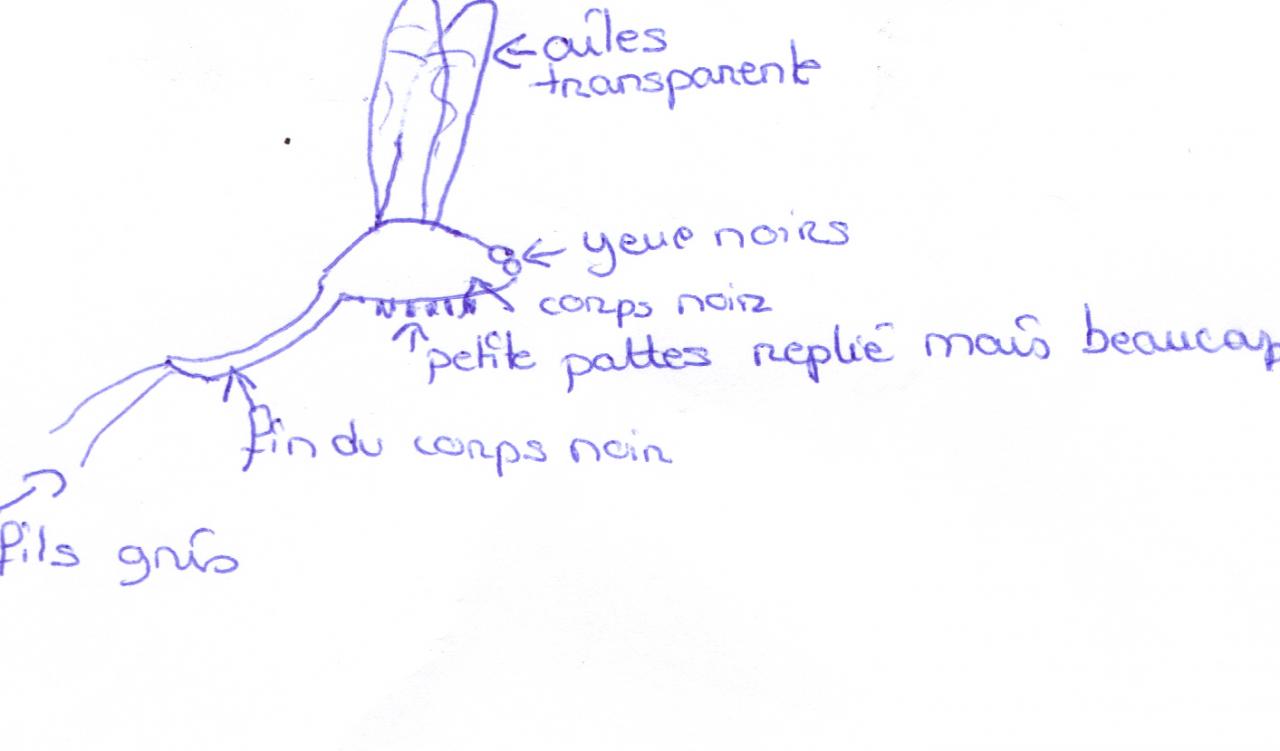 aîles
transparente
yeue noirs
corps noir
petite pattes replié mais beaucap
fin du corps noir
fils gris